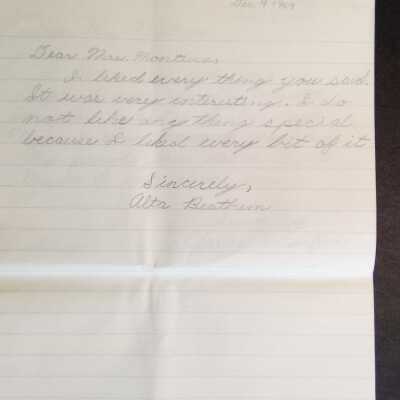 Dec. 9 1969
Dear Mrs.
I liked every thing you said.
It was very interesting. I do
not like any thing special
because I liked every bit of it
Sincerely,
Alta